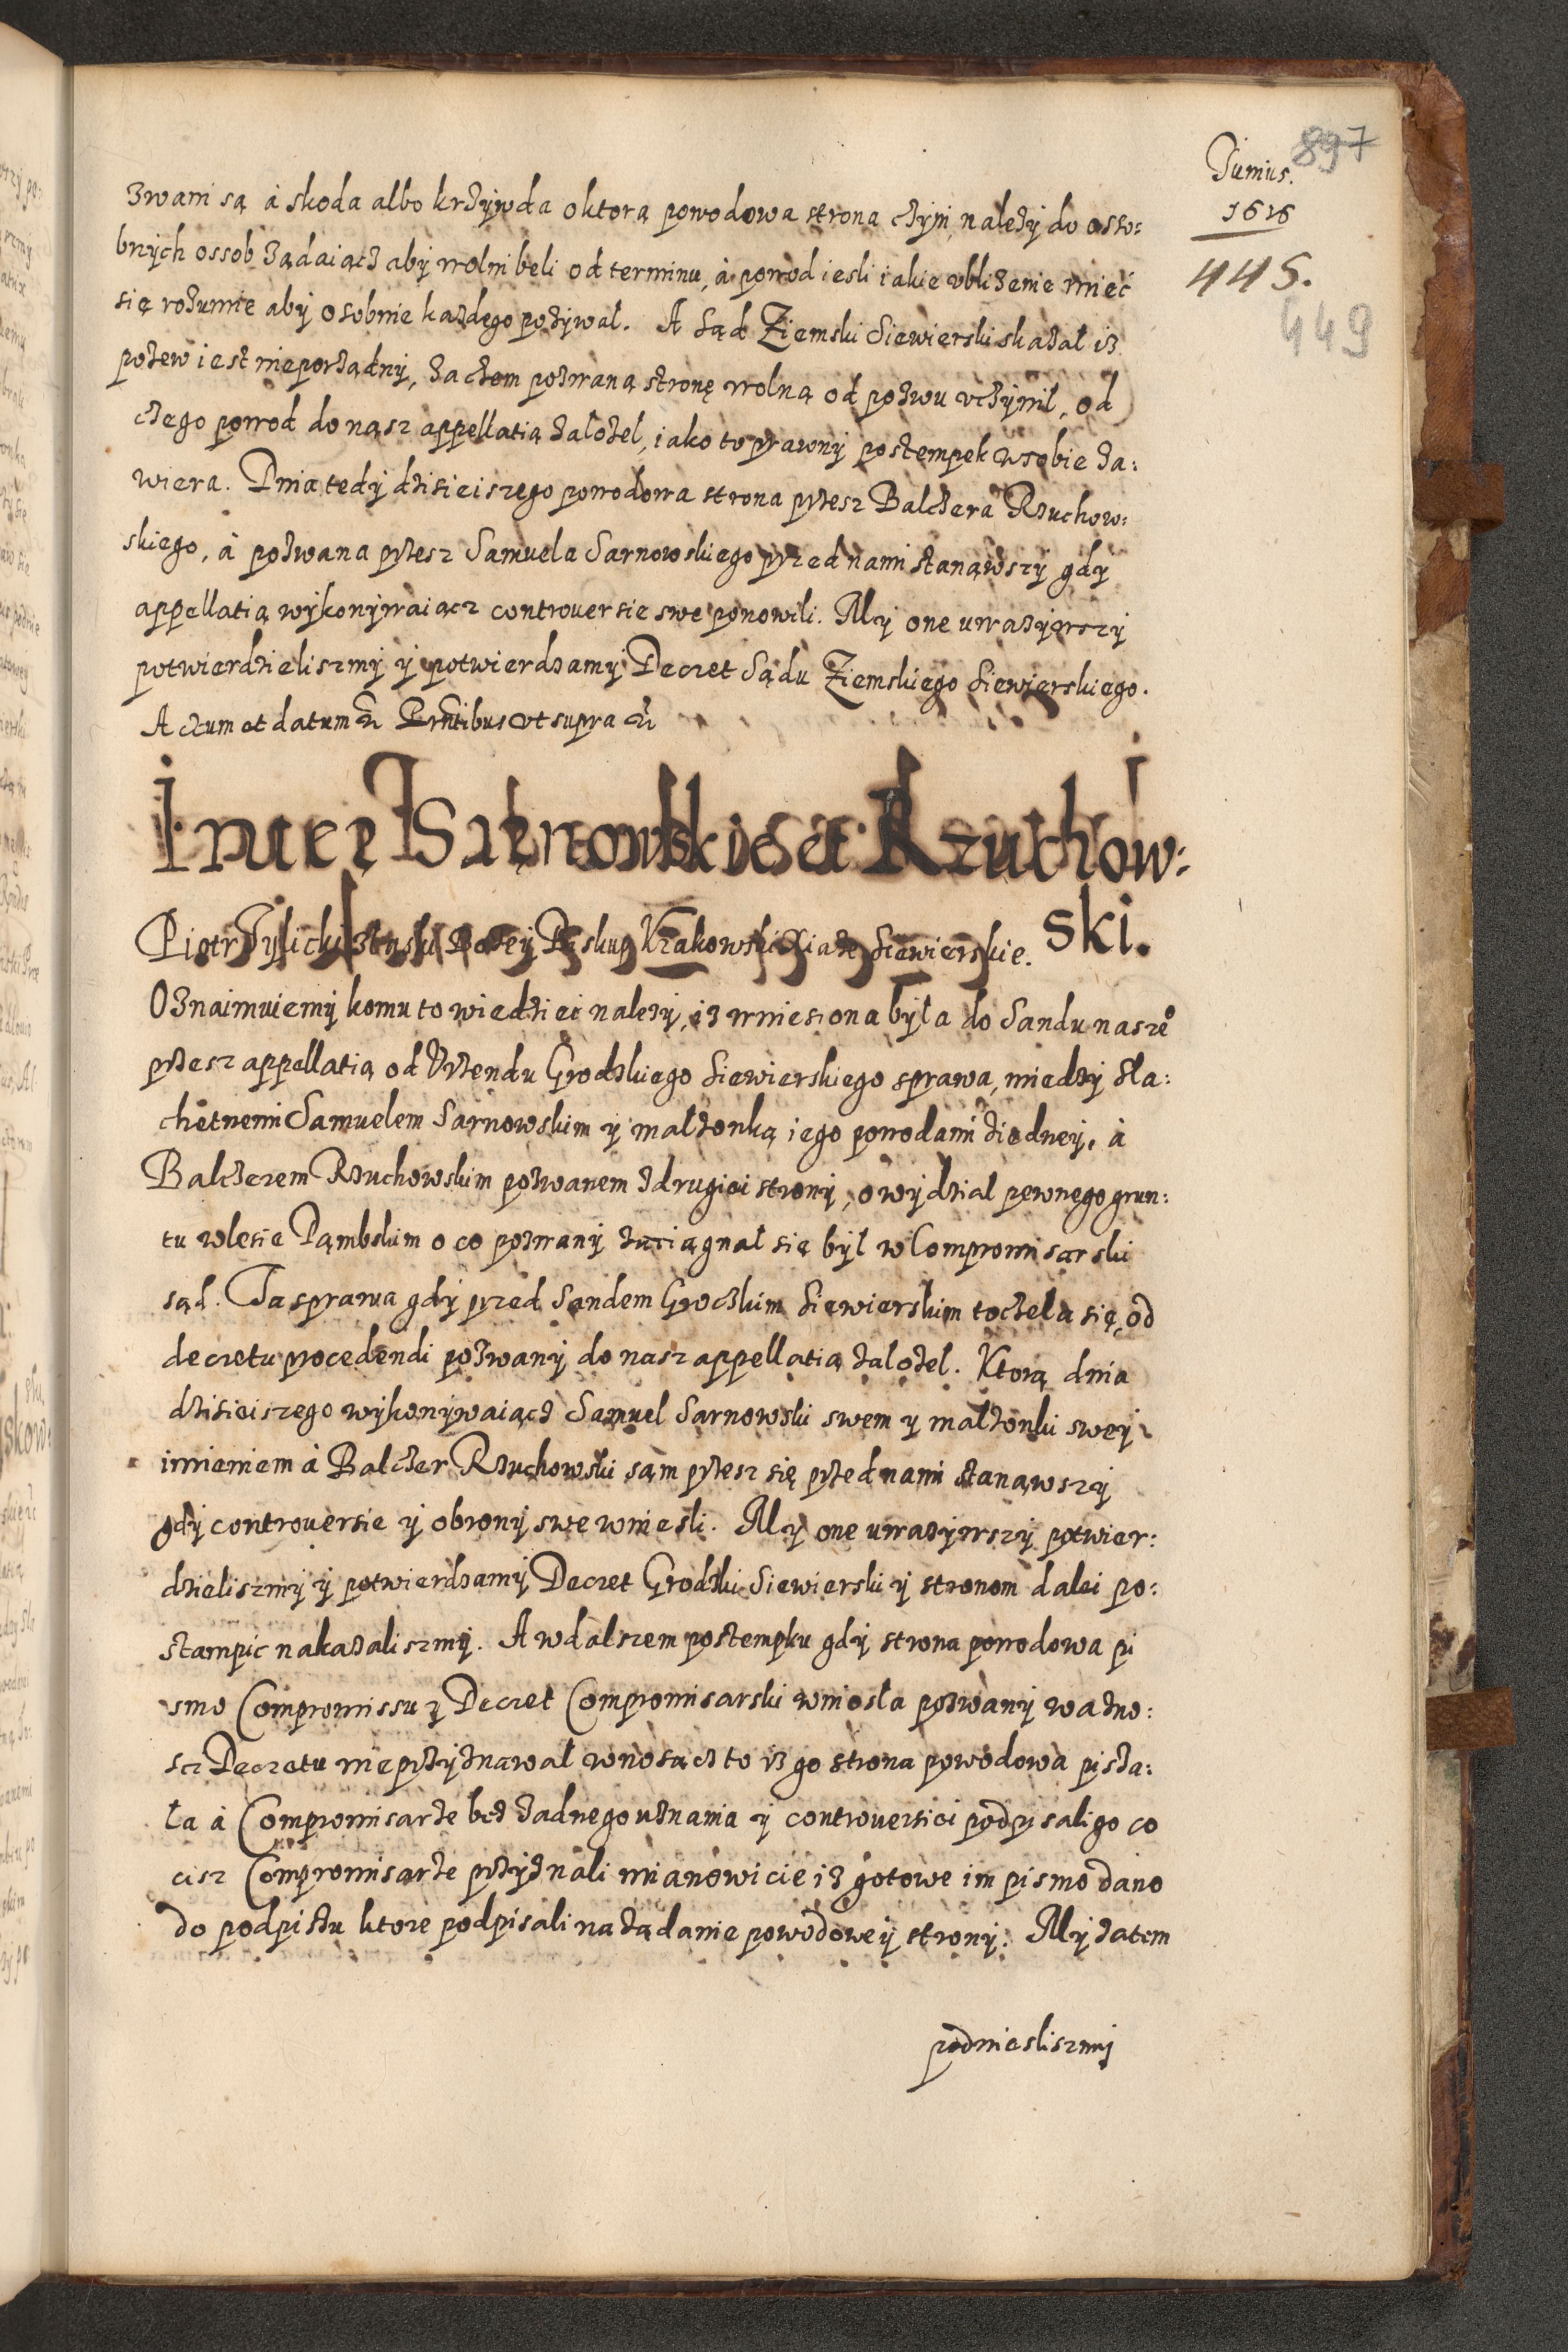 897
Junius.
1616
445.
449
zwani są à skoda albo krziwda o ktorą powodowa strona czÿni, należÿ do osso:
bnÿch ossob żądaiącz abÿ wolni beli od terminu, à powod iesli iakie ubliżenie mieć
się rozumie abÿ osobnie każdego pozÿwał. A Sąd Ziemski Siewierski skazał iz
pozew iest nieporządnÿ, zaczem pozwaną stronę wolną od pozwu uczÿnił, od
czego powod do nasz appellatią założeł, iako to prawnÿ postempek w sobie za:
wiera. Dnia tedÿ dzisieiszego powodowa strona przesz Balczera Rzuchow:
skiego, à pozwana przesz Samuela Sarnowskiego przed nami stanąwszÿ gdÿ
appellatią wÿkonÿwaiącz controuersie swe ponowili. Mÿ one uważÿwszÿ
potwierdzieliszmÿ ÿ potwierdzamÿ Decret Sądu Ziemskiego Siewierskiego.
Actum et datum Prntibus vt supra
Inter Sarnowskie et Rzuchow:
ski.
Piotr Tÿlicki z łaski Bożeÿ Biskup Krakowski Xiąże Siewierskie.
Oznaimuiemÿ komu to wiedziec należÿ, iz wniesiona bÿła do Sandu nasze°
przesz appellatią od Vrzendu Grodzkiego Siewierskiego sprawa, miedzÿ szla:
chetnemi Samuelem Sarnowskim ÿ małżonką iego powodami z iedneÿ, à
Balczerem Rzuchowskim pozwanem z drugiei stronÿ, o wÿdział pewnego grun:
tu w lesie Dąmbskim o co pozwanÿ zaciągnał się bÿł w Compromisarski
sąd. Ta sprawa gdÿ przed Sandem Grodzkim Siewierskim toczeła się, od
decretu procedendi pozwanÿ do nasz appellatią założel. Ktorą dnia
dzisieiszego wÿkonÿwaiącz Samuel Sarnowski swem ÿ małżonki sweÿ
imieniem à Balczer Rzuchowski sąm przesz się przed nami stanąwszÿ
gdÿ controuersie ÿ obronÿ swe wniesli. Mÿ one uważÿwszÿ potwier:
dzieliszmÿ ÿ potwierdzamÿ Decret Grodzki Siewierski ÿ stronom dalei po:
stąmpic nakazaliszmÿ. A w dalszem postempku gdÿ strona powodowa pi
smo Compromissu ÿ Decret Compromisarski wniosła pozwanÿ ważno:
sci Decretu nie przÿznawał wnosącz to iz go strona powodowa pisza:
ła à Compromisarze bez żadnego uznania ÿ controuersiei podpisali go co
cisz Compromisarze przÿznali mianowicie iż gotowe im pismo dano
do podpisu ktore podpisali na żądanie powodoweÿ stronÿ. Mÿ zatem
podniesliszmÿ